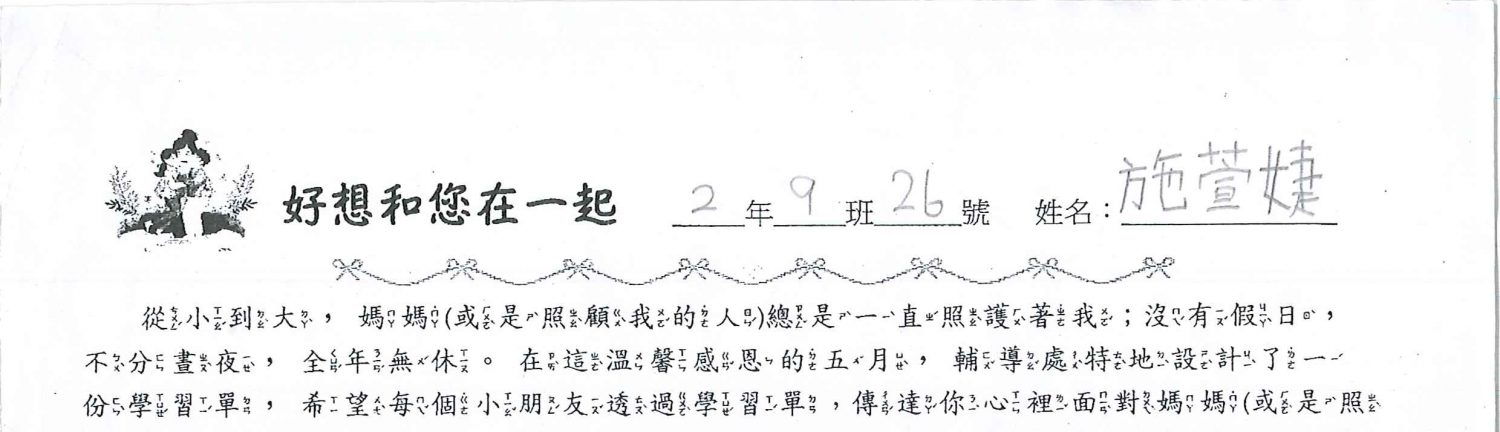 好想和您在一起 2年9班26號 姓名：施萱婕
從小到大，媽媽(或是照顧我的人)總是一直照護著我；沒有假日，
不分晝夜，全年無休。在這溫馨感恩的五月，輔導處特地設計了一
份學習單，希望每個小朋友透過學習單，傳達你心裡面對媽媽(或是照